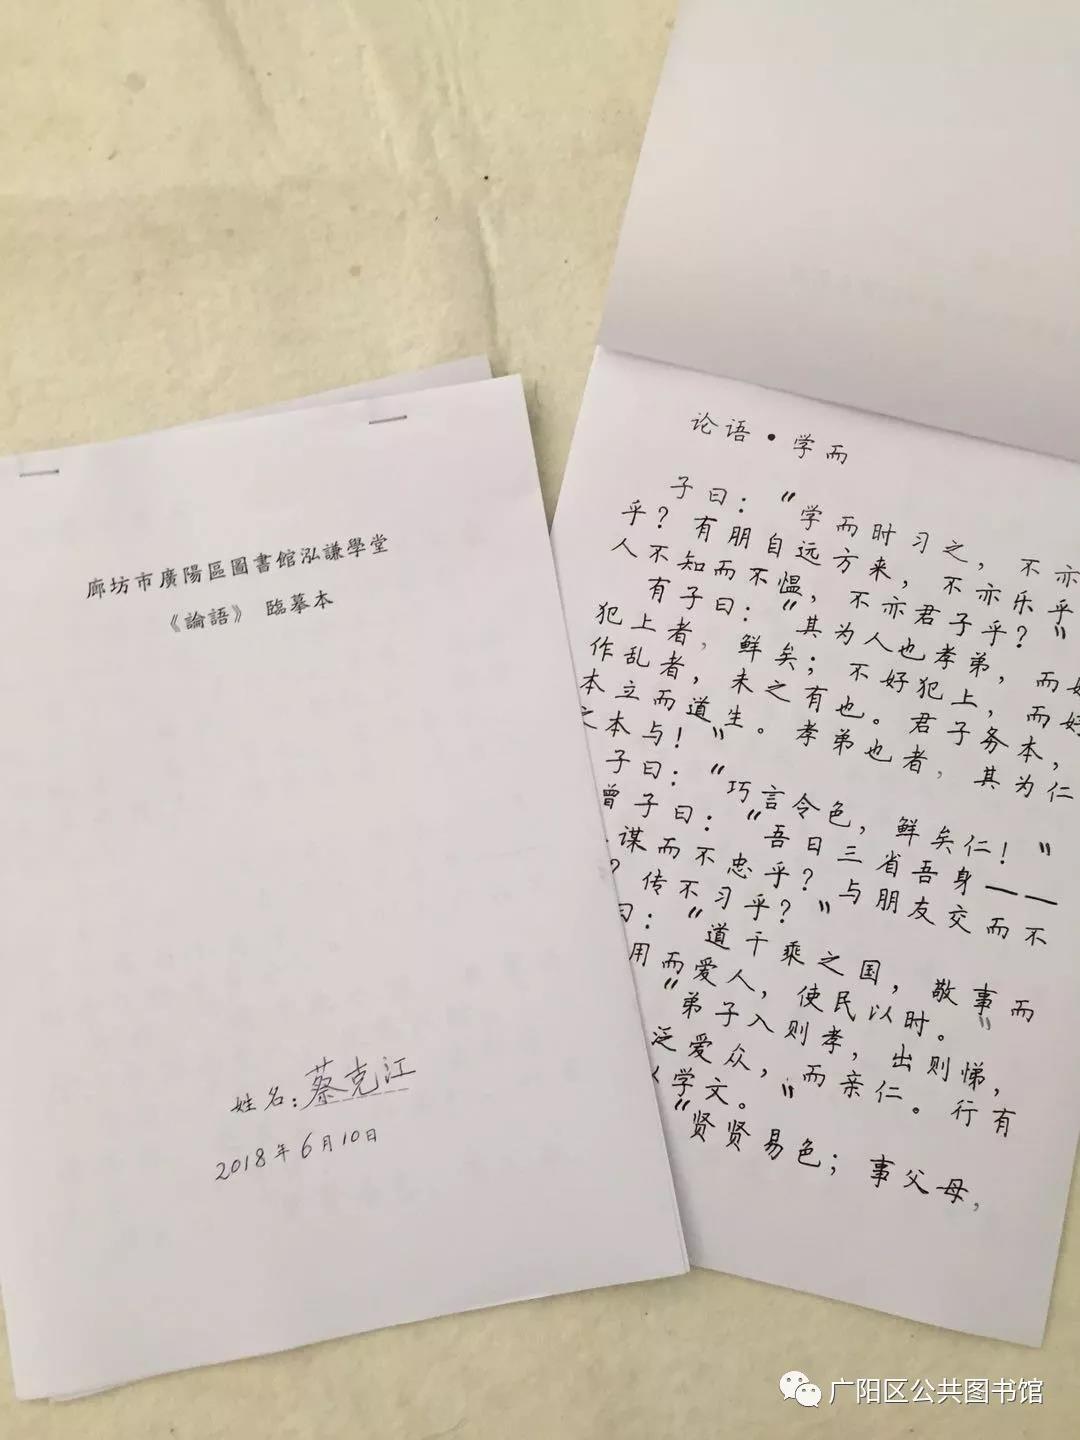 廊坊市廣陽區圖書館泓謙學堂
《論語》 臨摹本
姓名：蔡克江
2018年6月10日
论语·学而
子曰：“学而时习之，不亦
乎？有朋自远方来，不亦乐乎
人不知而不愠，不亦君子乎？”
有子曰：“其为人也孝弟，而好
犯上者，鲜矣；不好犯上，而好
作乱者，未之有也。君子务本，
本立而道生。孝弟也者，其为仁
之本与！”
子曰：“巧言令色，鲜矣仁！”
曾子曰：“吾日三省吾身——
谋而不忠乎？与朋友交而不
？传不习乎？”
曰：“道千乘之国，敬事而
用而爱人，使民以时。”
“弟子入则孝，出则悌，
泛爱众，而亲仁。行有
学文。”
“贤贤易色；事父母，
广阳区公共图书馆